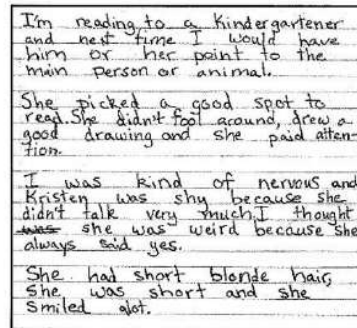 I'm reading to a Kindergartener
and next time I would have
him or her point to the
main person or animal.
She picked a good spot to
read. She didn't fool around, drew a
good drawing and she paid atten-
tion.
I was kind of nervous and
Kristen was shy because she
didn't talk very much. I thought
was she was weird because she
always said yes.
She had short blonde hair,
She was short and she
smiled alot.